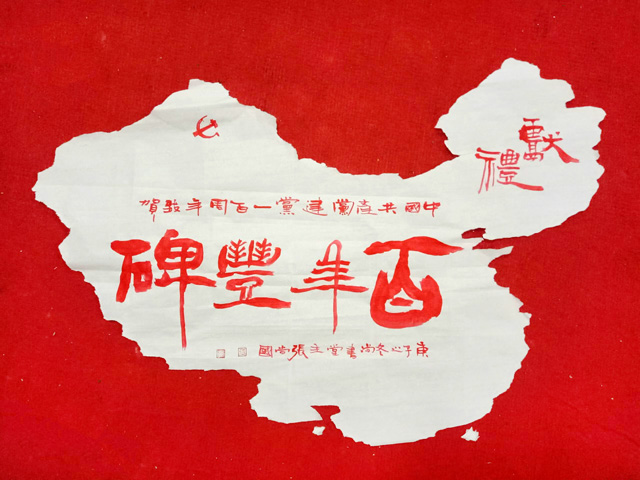 獻禮
中國共產黨建黨一百周年致賀
百年豐碑
庚子之冬尚書堂主張尚國